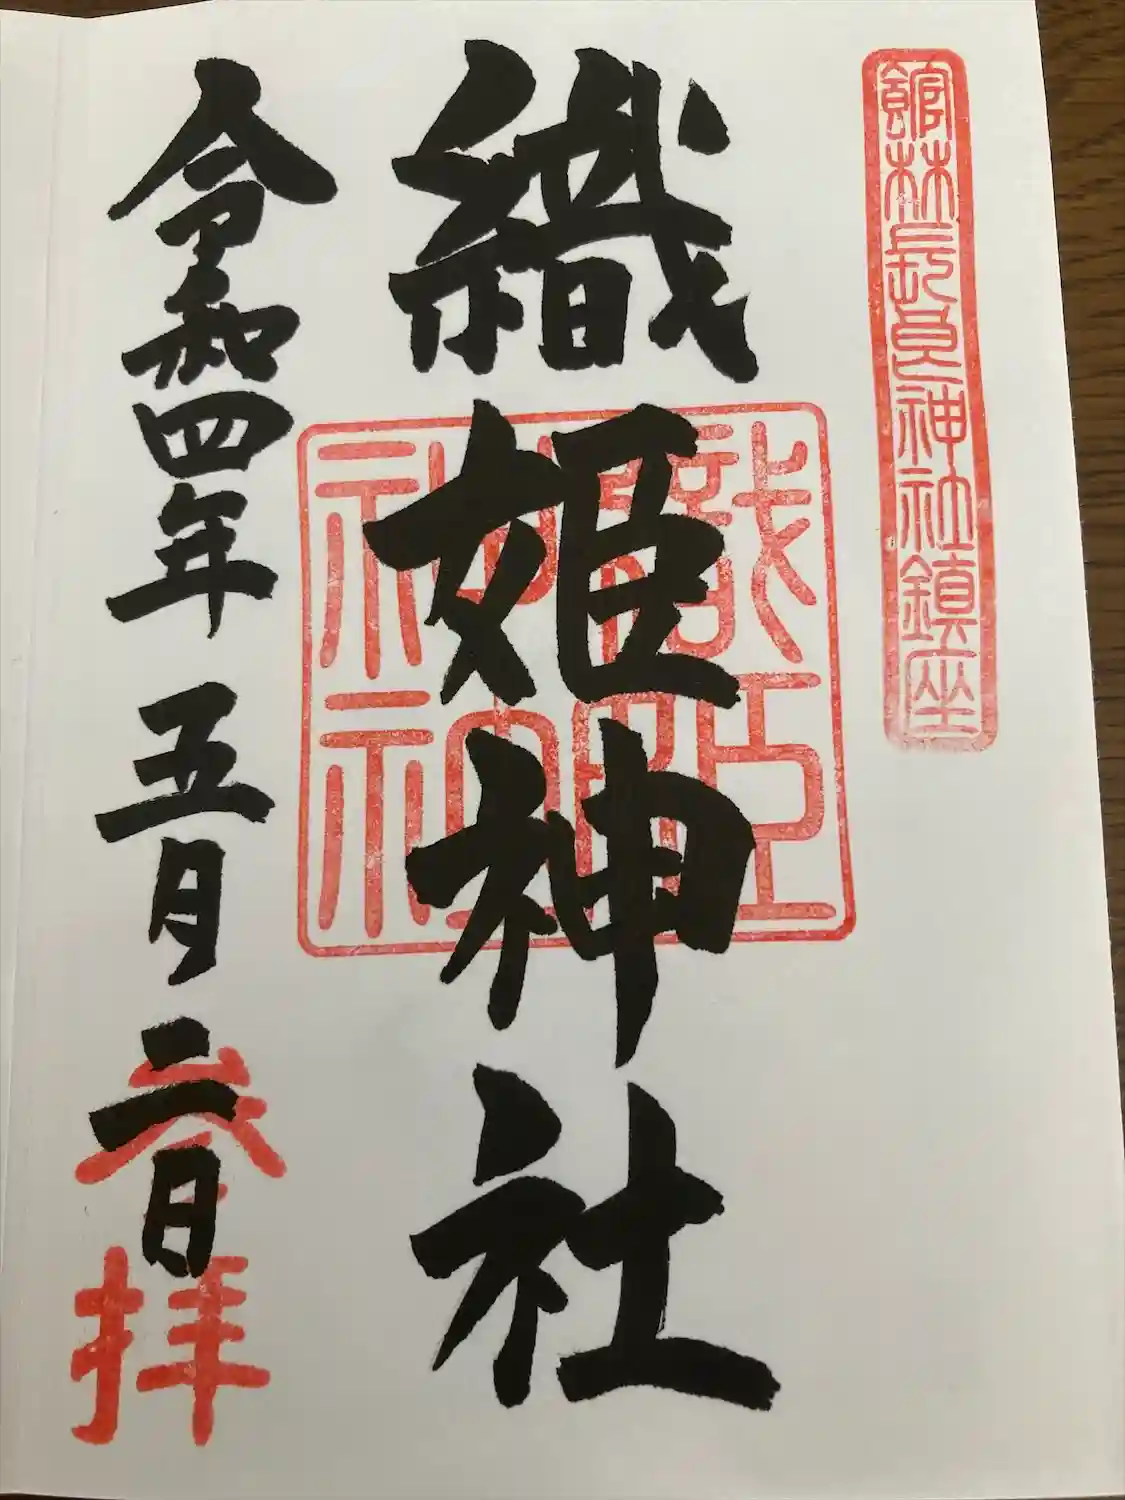 館林長良神社鎮座
織姫神社
織姫
神社
令和四年五月二日
参拝